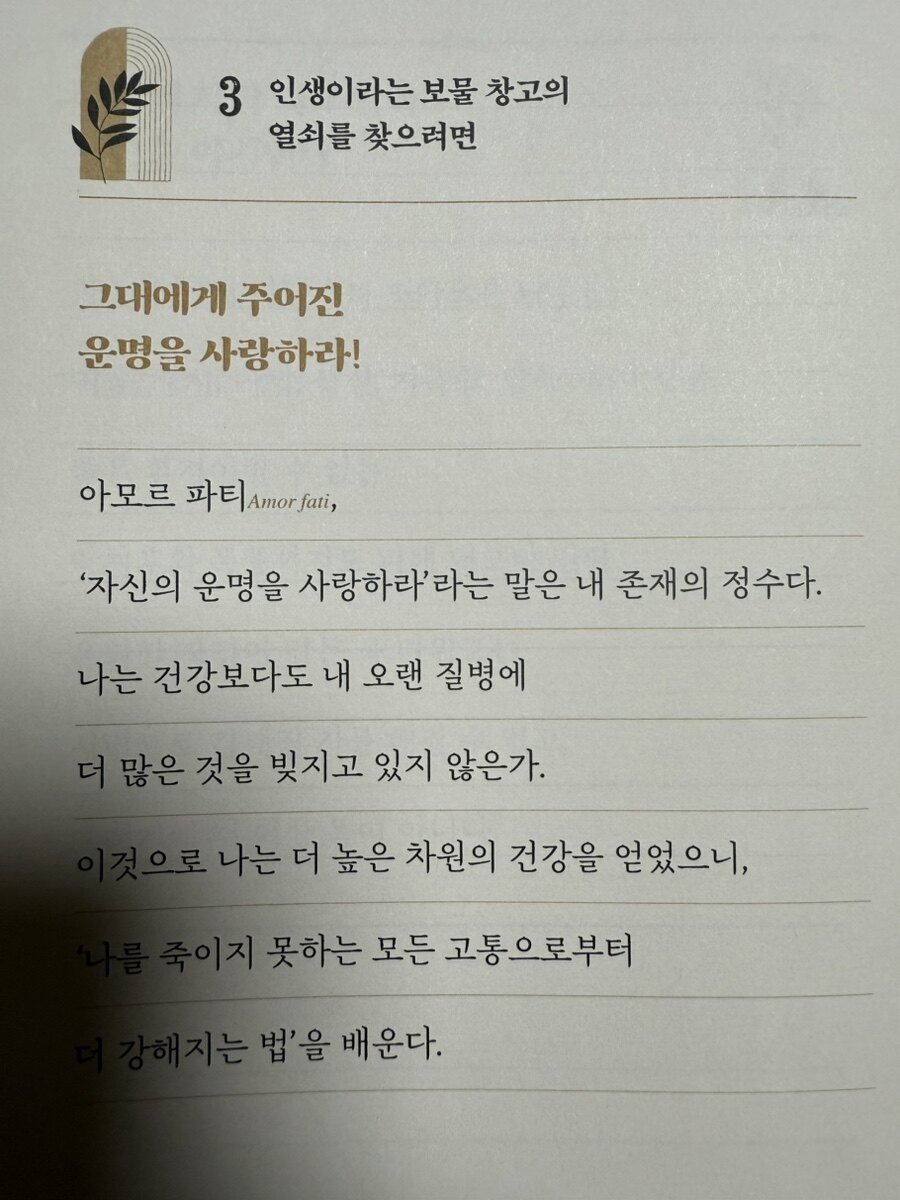 3 인생이라는 보물 창고의
열쇠를 찾으려면
그대에게 주어진
운명을 사랑하라!
아모르 파티Amor fati,
‘자신의 운명을 사랑하라’라는 말은 내 존재의 정수다.
나는 건강보다도 내 오랜 질병에
더 많은 것을 빚지고 있지 않은가.
이것으로 나는 더 높은 차원의 건강을 얻었으니,
‘나를 죽이지 못하는 모든 고통으로부터
더 강해지는 법’을 배운다.